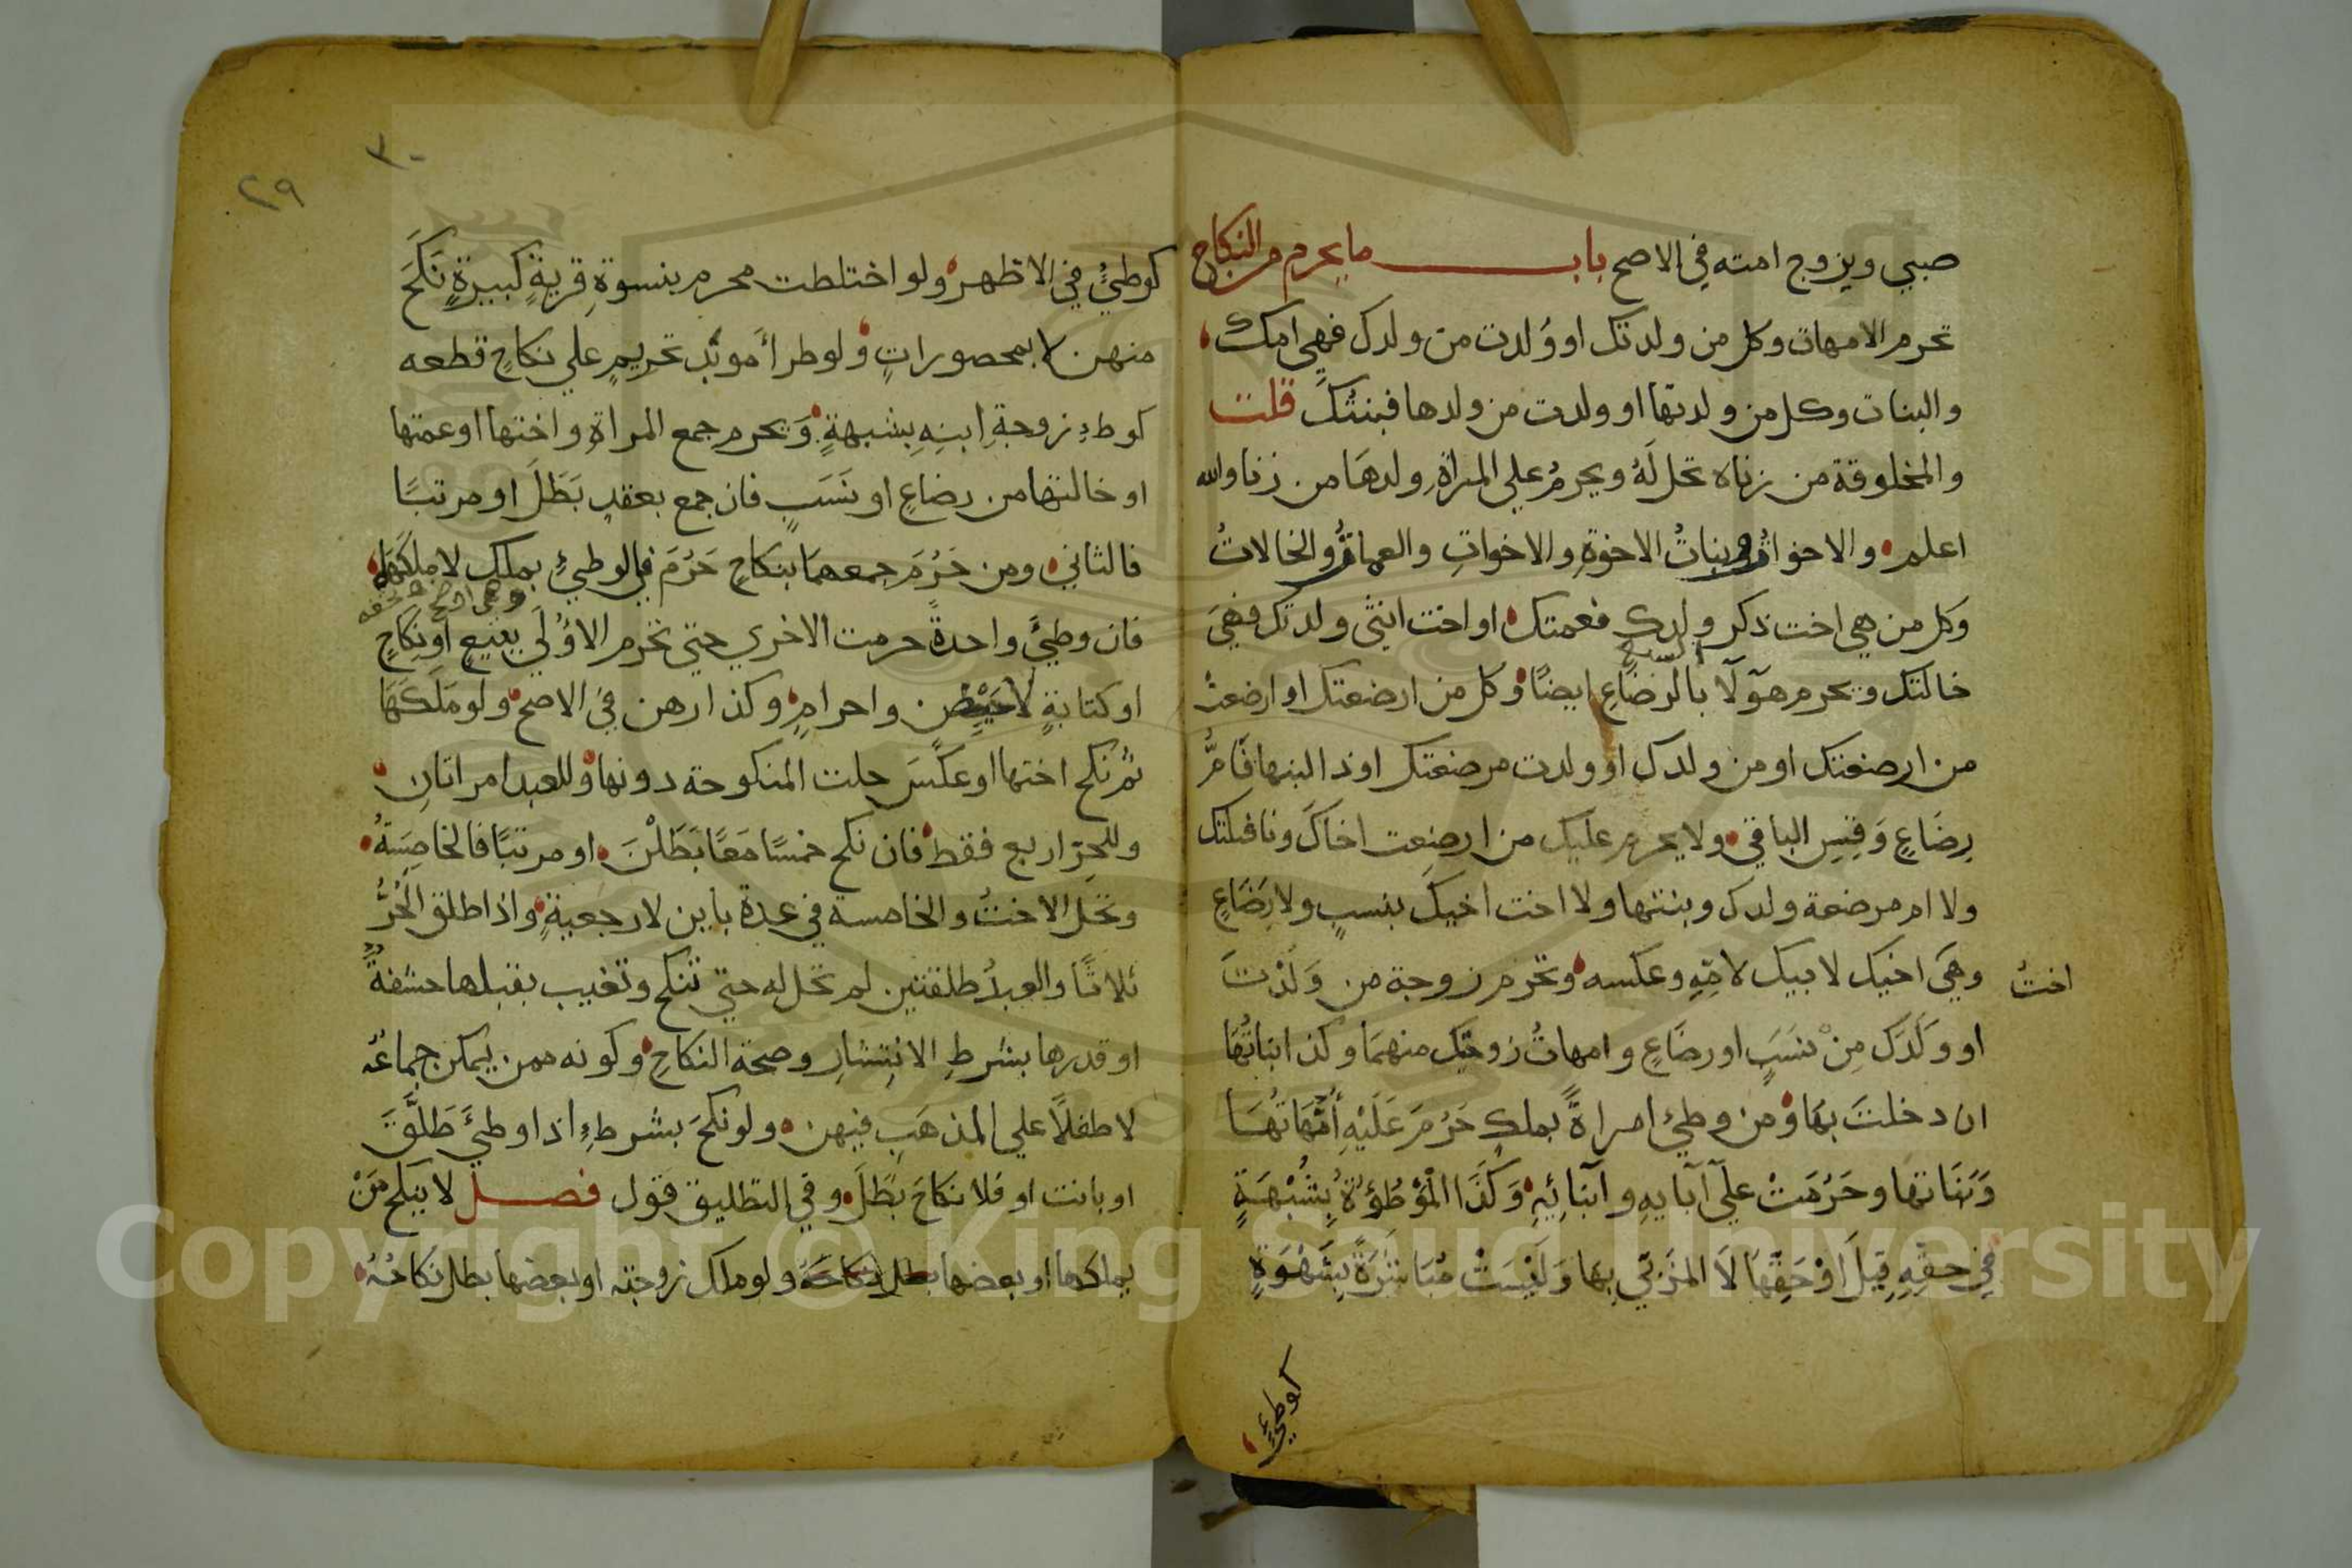 صبي ويزوج امته في الاصح باب ما يحرم من النكاح
تحرم الامهات وكل من ولدتك او وُلدت من ولدك فهي امك
والبنات وكل من ولدتها او ولدت من ولدها فبنتُك قلت
والمخلوقة من زناه تحل لَهُ ويحرمُ علي المراةِ ولدهَا من زنا والله
اعلم والاخواتُ وبناتُ الاخوةِ والاخواتِ والعماتُ والخالاتُ
وكل من هي اخت ذكر ولدك فعمتك او اخت انثى ولدتك فهيَ
خالتك ويحرم هؤلآ بالرضاعِ ايضًا وكل من ارضعتك او ارضعتْ
من ارضعتك او من ولدك او ولدت مرضعتك او ذا لبنها فَامُّ
رِضَاعٍ وَقِسِ الباقي ولا يحرم عليك من ارضعت اخاكَ ونافلتك
ولا ام مرضعة ولدك وبنتها ولا اخت اخيك بنسبٍ ولا رِضَاعٍ
وهيَ اخيك لابيك لامّهِ وعكسه وتحرم زوجة من وَلَدْتَ
اختُ
او وَلَدَك مِنْ نسَبٍ او رضَاعٍ وامهاتُ زوجتِك منهمَا وكذا بناتُهَا
ان دخلتَ بهَا ومن وطئ امراةً بملكٍ حَرُمَ عَلَيْهِ أُمَّهَاتُهَا
وَبَنَاتها وحَرُمَتْ عليَ آبايهِ وآبنائِهِ وَكَذَا الْمَوْطُؤَةُ بِشُبْهَةٍ
في حقِّهِ قِيلَ اوْ حَقِّهَا لاَ المَزْني بهَا وَلَيْسَتْ مُبَاشَرَةً بِشَهْوَةٍ
كوطئٍ
٣٠
٢٩
كوطيٍ في الاظهر ولو اختلطت محرم بنسوةِ قريةٍ كبيرةٍ نَكَحَ
منهن لا بمحصوراتٍ ولو طرأ موبَّد تحريمٍ علي نكاحٍ قطعه
كوطءِ زوجةِ ابنِهِ بِشبهةٍ وَيحرم جمع المراةِ واختها او عمتها
او خالتها من رضاعٍ او نَسَبٍ فان جمع بعقدٍ بَطَلَ او مرتبًا
فالثاني ومن حَرُمَ جمعهمَا بنكاحٍ حَرُمَ في الوطيْ بملك لا ملكَهَا
فان وطيَ واحدةً حرمت الاخري حتي تحرم الاوُلَي ببيعٍ اونِكَاحٍ
او كتابةٍ لا حَيْضٍ واحرامٍ وكذا رهن في الاصح ولو مَلَكَهَا
ثم نكح اختها او عكَسَ حلت المنكوحة دونها وللعبد امراتانِ
وللحِرّ اربع فقط فان نكح خمسًا مَعًا بَطَلْنَ او مرتبًا فالخامِسَةُ
وتحل الاختُ والخامسة في عدة باين لا رجعيةٍ واذا طلق الحُرُّ
ثلاثًا والعبدُ طلقتين لم تحل له حتي تنكح وتغيب بقبلها حشفةٌ
او قدرها بشرطِ الانتشارِ وصحة النكاحِ وكونه ممن يمكن جماعُه
لا طفلًا علي المذهَبِ فيهن ولو نكحَ بشرطِ اذا وطيَ طَلَّقَ
او بانت او فلا نكاحَ بَطَلَ وفي التطليق قول فصل لا ينكح مَنْ
يملكها او بعضها ولو ملك زوجته او بعضها بطل نكاحُهُ